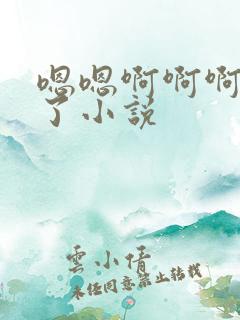 嗯嗯啊啊啊
了小说
云小倩
未经同意禁止转载